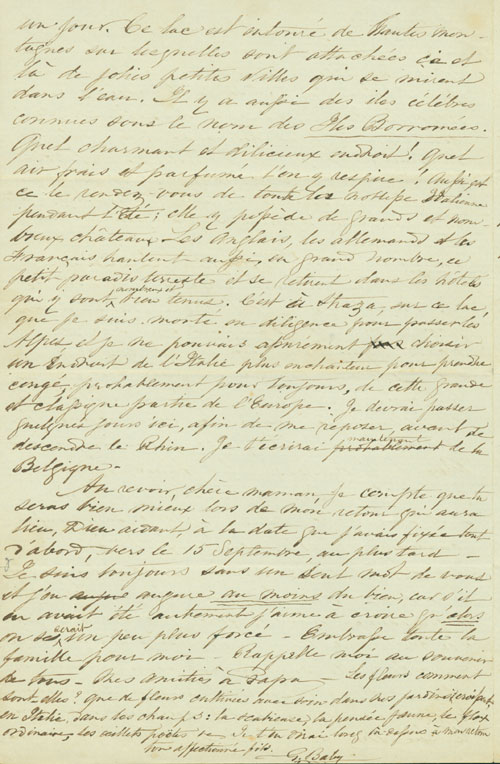 un jour. Ce lac est entouré de Hautes mon-
tagnes sur lesquelles sont attachées ça et
là de jolies petites villes qui se mirent
dans l'eau. Il y a aussi des îles célèbres
connues sous le nom des Iles Borromées.
Quel charmant et délicieux endroit! Quel
air frais et parfumé l'on y respire! Aussi est
ce le rendez-vous de toute la noblesse Italienne
pendant l'Été; elle y possède de grands et nom-
breux châteaux. Les Anglais, les allemands et les
Français hantent aussi, en grand nombre, ce
petit paradis terrestre et se retirent dans les hôtels
qui y sont nombreux et bien tenus. C'est à Straza, sur ce lac,
que je suis monté en diligence pour passer les
Alpes et je ne pouvais assurément pas choisir
un Endroit de l'Italie plus enchanteur pour prendre
congé, probablement pour toujours, de cette grande
et classique partie de l'Europe. Je devrai passer
quelques jours ici, afin de me reposer, avant de
descendre le Rhin. Je t'écrirai probablement maintenant de la
Belgique.
Au revoir, chère maman, je compte que tu
seras bien mieux lors de mon retour qui aura
lieu, Dieu aidant, à la date que j'avais fixée tout
d'abord, vers le 15 Septembre, au plus tard -
Je suis toujours sans un seul mot de vous
et j'en augure au moins du bien, car s'il
en avait été autrement j'aime à croire qu'alors
on se serait un peu plus forcé - Embrasse toute la
famille pour moi - Rappelle moi au souvenir
de tous - Mes amitiés à Papa - Les fleurs comment
sont-elles? que de fleurs cultivées avec soin dans nos jardins croissent
en Italie, dans les champs: la scabieuse, la pensée jaune, le flox
ordinaire, les oeillets poëtes &c Je t'en dirai long là-dessus à mon retour
ton affectionné fils.
G. Baby